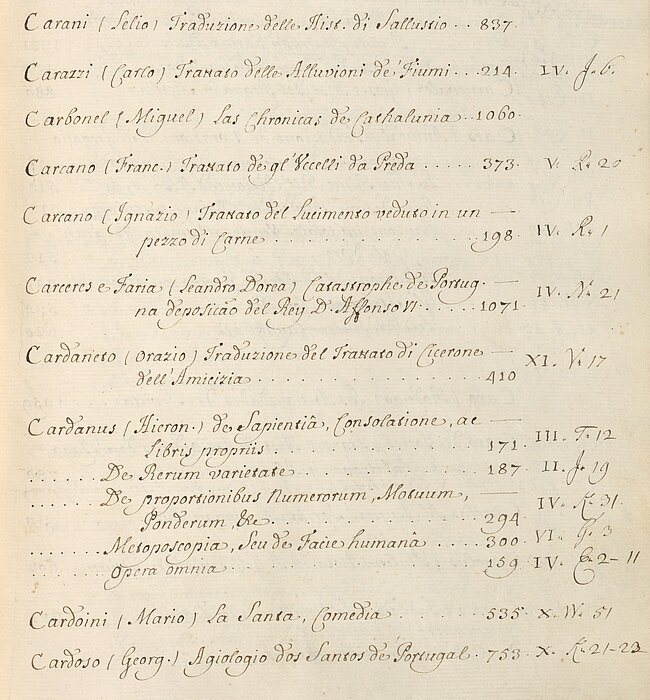 Carani (Lelio) Traduzione delle Hist. di Sallustio . . 837.
Carazzi (Carlo) Trattato delle Alluvioni de' Fiumi . . 214. IV. J. 6.
Carbonel (Miguel) Las Chronicas de Cathalunia . . 1060.
Carcano (Franc.) Trattato de gl'Vccelli da Preda . . . . . 373. V. R. 20
Carcano (Ignazio) Trattato del Lucimento veduto in un —
pezzo di Carne . . . . . . . . . . . . 198. IV. R. 1
Carceres e Faria (Leandro Dorea) Catastrophe de Portug.
na deposicão del Rey D. Affonso VI . . . . . 1071. IV. N. 21
Cardaneto (Orazio) Traduzione del Trattato di Cicerone —
dell'Amicizia . . . . . . . . . . . . . 410 XI. V. 17
Cardanus (Hieron.) de Sapientiâ, Consolatione, ac —
Libris propriis . . . . . . . . . . . . 171. III. T. 12
. . . . . . De Rerum varietate . . . . . . . . . . . 187. II. J. 19
. . . . . . De proportionibus Numerorum, Motuum, —
Ponderum, &c . . . . . . . . . . . . 294. IV. K. 31.
. . . . . . Metoposcopia, Seu de Facie humanâ . . . . 300. VI. 3
. . . . . . Opera omnia . . . . . . . . . . . . . . 159. IV. E. 2-11
Cardoini (Mario) La Santa, Comedia . . . . . . . 535. X. W. 51
Cardoso (Georg.) Agiologio dos Santos de Portugal . 753. X. K. 21-23